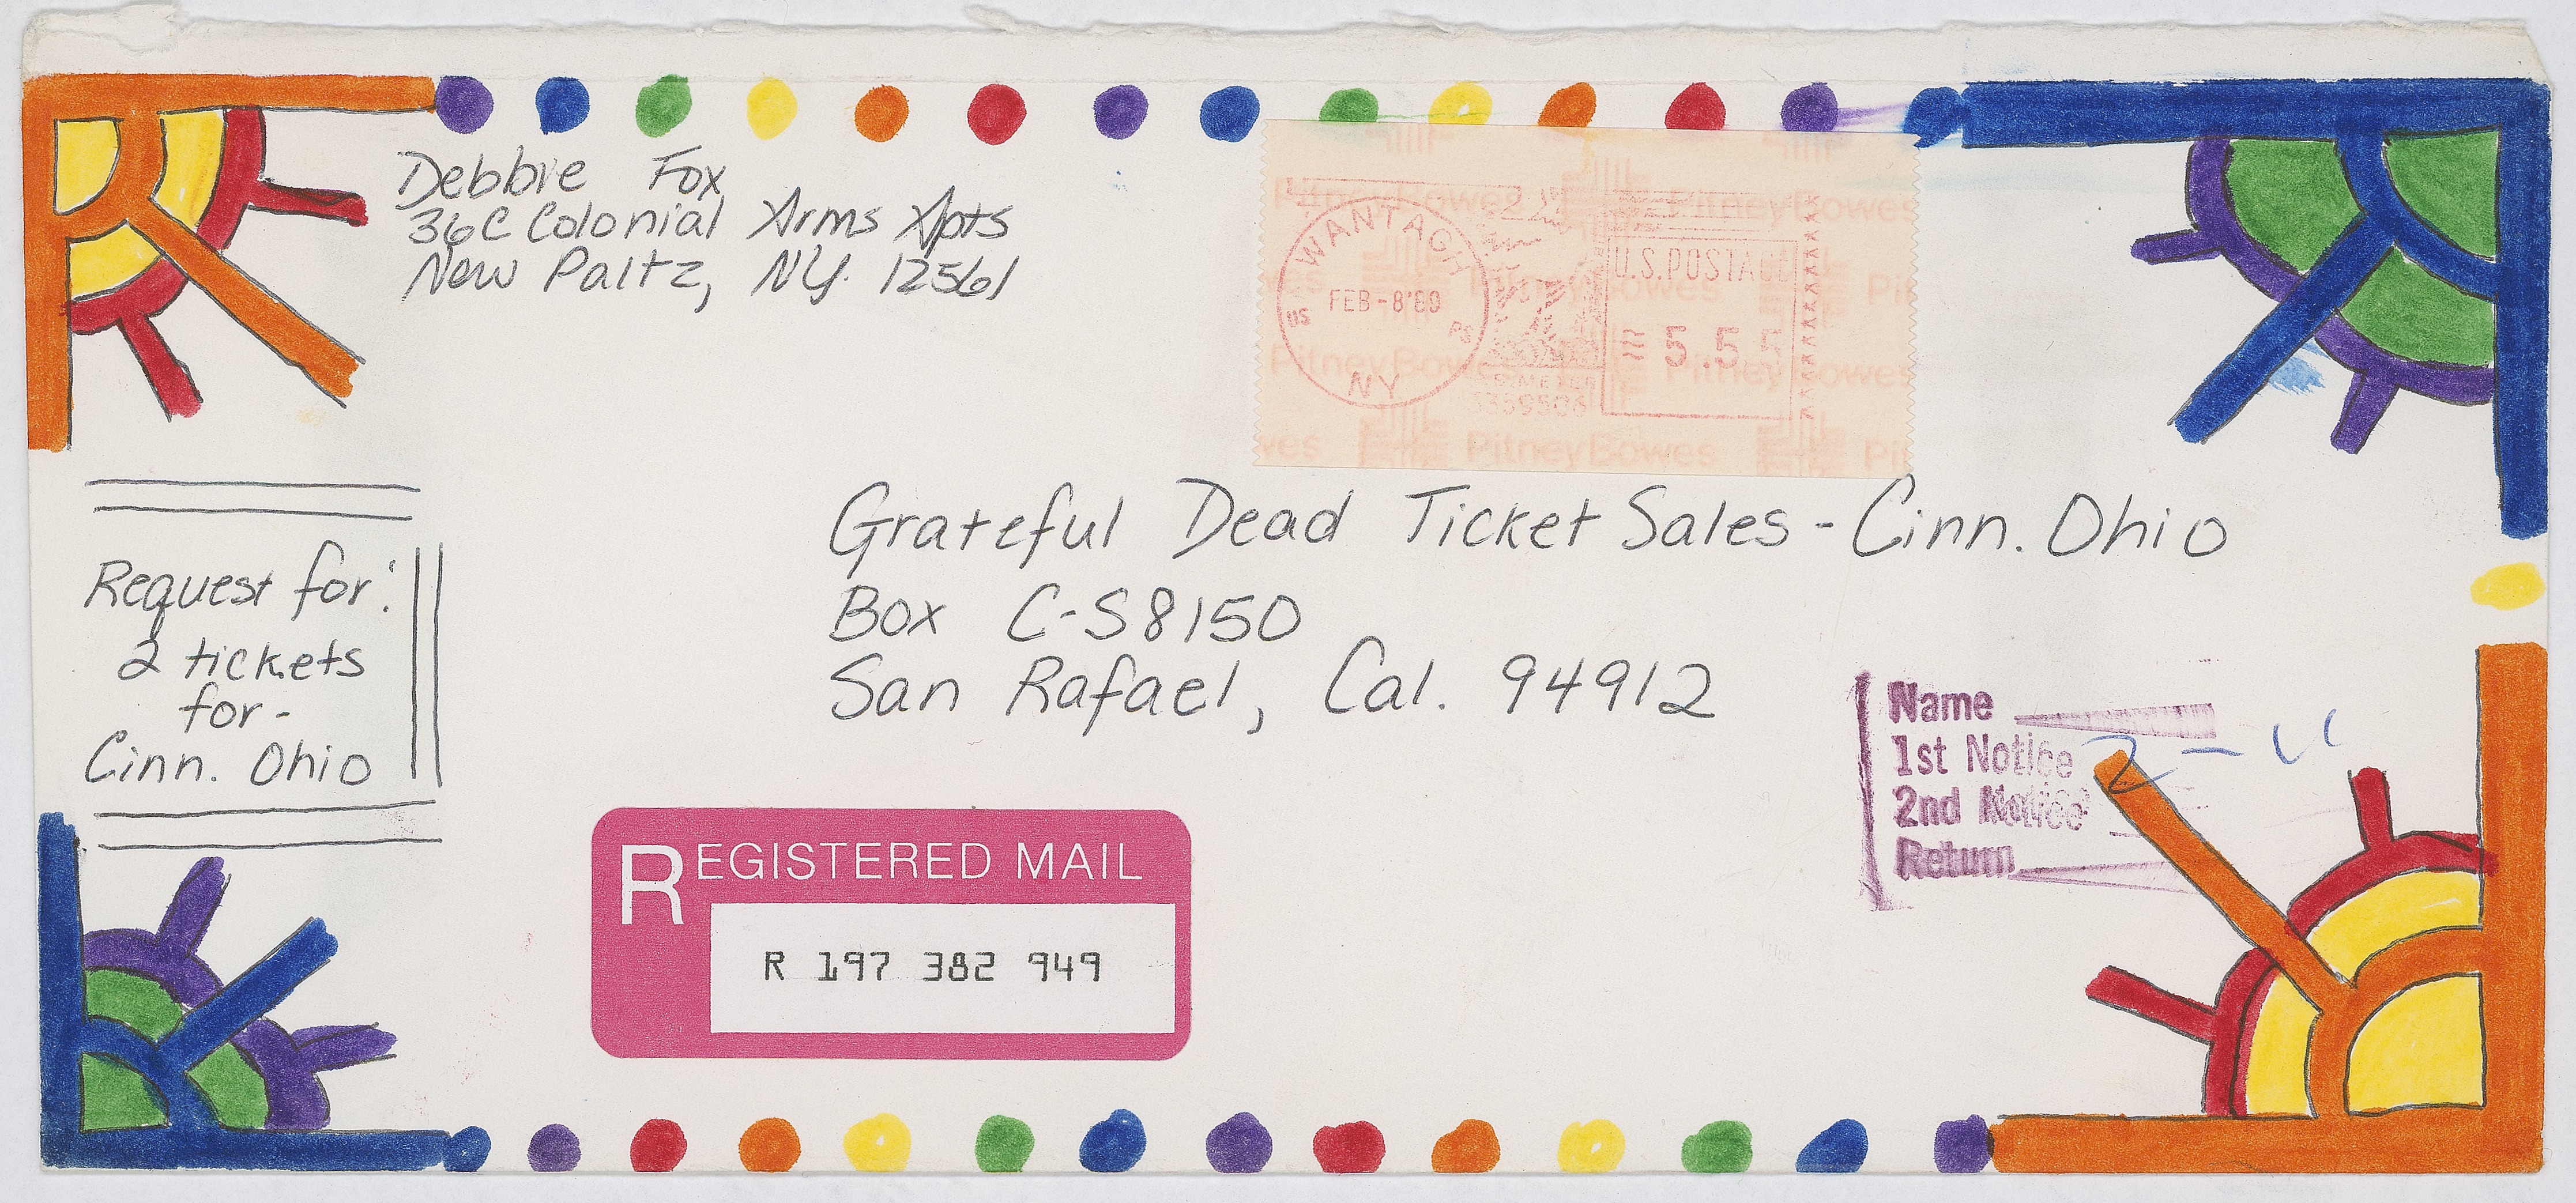 Debbie Fox
36C Colonial Arms Apts
New Paltz, NY. 12561
WANTAGH
FEB-8'89
US PS
NY
U.S.POSTAGE
5.55
PitneyBowes
Grateful Dead Ticket Sales - Cinn. Ohio
Box C-S8150
San Rafael, Cal. 94912
Request for:
2 tickets
for-
Cinn. Ohio
Name
1st Notice
2nd Notice
Return
REGISTERED MAIL
R 197 382 949